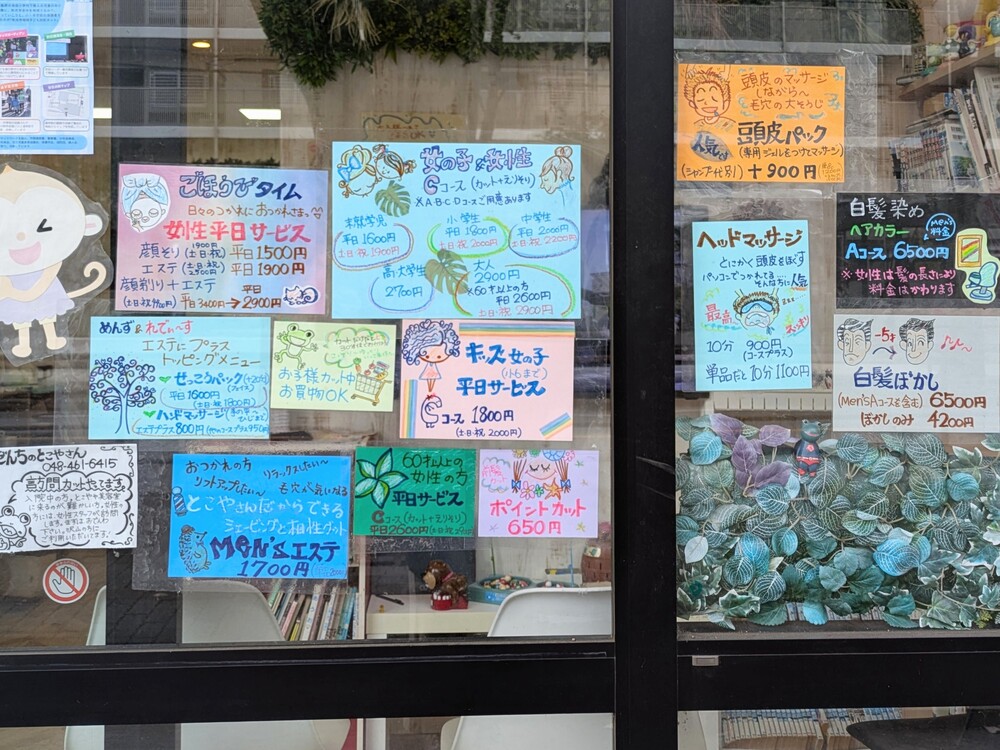 ごほうびタイム
日々のつかれにおつかれさまっ
女性平日サービス
顔そり(土日祝)1900円 平日1500円
エステ(土・日・祝) 平日1900円
顔剃り+エステ 平日
平日3400円→2900円
女の子&女性
Cコース(カット+えりそり)
※A・B・C・Dコースご用意あります
未就学児
平日1600円
土・日・祝1900円
小学生
平日1800円
土・日・祝2000円
中学生
平日2000円
土・日・祝2200円
高・大学生
2700円
大人
2900円
※60才以上の方
平日2600円
土・日・祝2900円
めんず&れでぃーす
エステにプラス
トッピングメニュー
せっこうパック(+20分)
平日1600円
(土・日・祝1800円)
ハンドマッサージ
エステプラス800円
お子様カット中
お買物OK
キッズ女の子
(小6まで)
平日サービス
Cコース1800円
(土・日・祝2000円)
んちのとこやさん
048-461-6415
訪問カットやってます
おつかれの方
リラックスしたい〜
リフトアップしたい〜
毛穴が気になる
とこやさんだからできる
シェービングと相性グット
Men'sエステ
1700円
60才以上の
女性の方
平日サービス
Cコース(カット+えりそり)
平日2600円
ポイントカット
650円
頭皮のマッサージ
しながらん
毛穴の大そうじ
人気
頭皮パック
(専用ジェルをつけてマッサージ)
(シャンプー代別)+900円
ヘッドマッサージ
とにかく頭皮をほぐす
パソコンでつかれてる・・そんな方に人気
最高
スッキリ
10分 900円
(コースプラス)
単品だと10分1100円
白髪染め
ヘアカラー
Men's
料金
Aコース6500円
※女性は髪の長さにより
料金はかわります
-5才
白髪ぼかし
(Men'sAコースを含む)6500円
ぼかしのみ 4200円